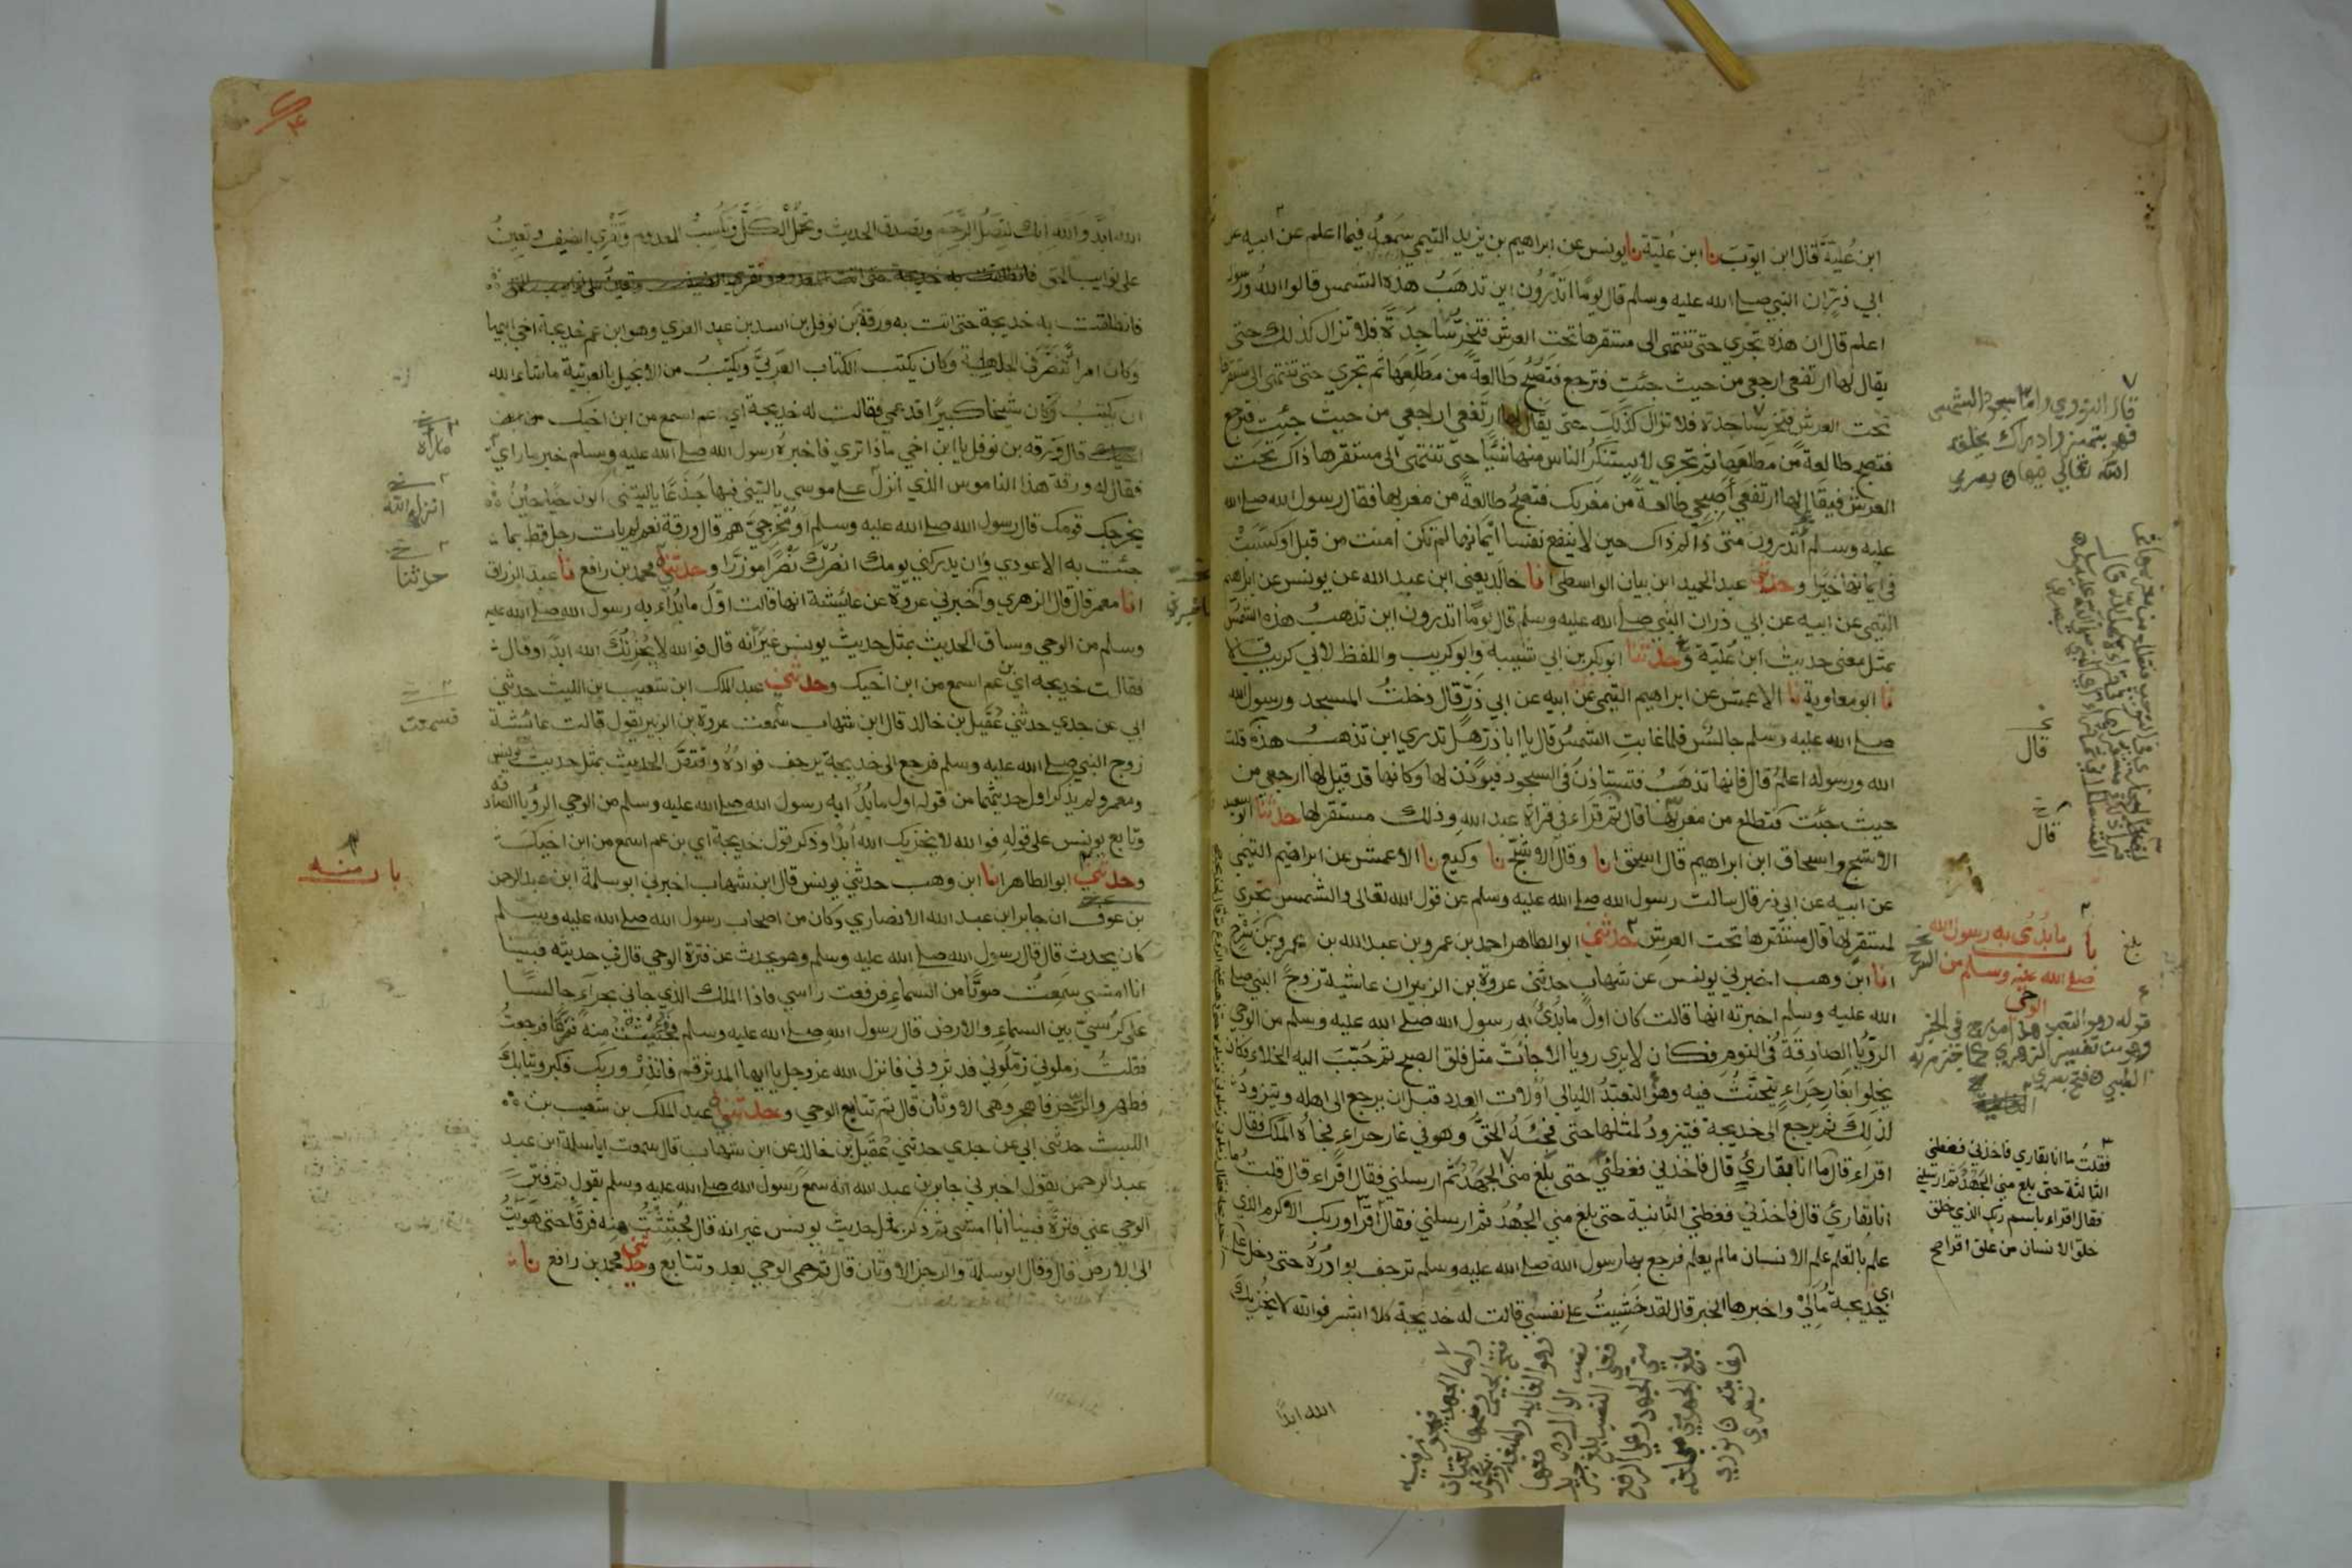 ابن عُليّة قال ابن ايوب نا ابن عُليّة نا يونس عن ابراهيم بن يزيد التيمي سمعه فيما اعلم عن ابيه عن
ابي ذر ان النبي صلے الله عليه وسلم قال يومًا اتدرون اين تذهَبُ هذه الشمس قالوا الله ورسوله
اعلم قال ان هذه تجري حتى تنتهى الى مستقرها تحت العرش فتخرّ ساجدَةً فلا تزال كذلك حتى
يقال لها ارتفعي ارجعي من حيث جئتِ فترجع فتصبحُ طالعةً من مَطلَعِهَا ثم تجري حتى تنتهى الى مستقرها
تحت العرش فتخر ساجدة فلا تزال كذلك حتى يقال لها ارتفعي ارجعي من حيث جئتِ فترجع
فتصبح طالعةً من مطلعها ثم تجري لا يستنكرُ الناس منها شيئًا حتى تنتهى الى مستقرها ذاك تحت
العرش فيقال لها ارتفعي أصبحي طالعةً من مغربك فتصبحُ طالعةً من مغربها فقال رسول الله صلے الله
عليه وسلم أتدرون متى ذاكم ذاك حين لا ينفع نفسا ايمانها لم تكن آمنت من قبل او كسبَتْ
في ايمانها خيرا وحدثني عبد الحميد ابن بيان الواسطي انا خالد يعني ابن عبد الله عن يونس عن ابراهيم
التيمي عن ابيه عن ابي ذر ان النبي صلے الله عليه وسلم قال يومًا اتدرون اين تذهبُ هذه الشمسُ
بمثل معنى حديث ابن عُليّة وحدثنا ابوبكر بن ابي شيبة وابو كريب واللفظ لابي كريب قالا
نا ابو معاوية نا الاعمش عن ابراهيم التيمي عن ابيه عن ابي ذرّ قال دخلتُ المسجد ورسول الله
صلے الله عليه وسلم جالسٌ فلما غابتِ الشمسُ قال يا ابا ذر هل تدري اين تذهبُ هذه قلت
الله ورسوله اعلمُ قال فانها تذهَبُ فتستاذنَ في السجود فيوذن لها وكانها قد قيل لها ارجعي من
حيث جئت فتطلع من مغربها قال ثم قراء في قراة عبد الله وذلك مستقر لها حدثنا ابو سعيد
الاشج واسحاق ابن ابراهيم قال اسحق انا وقال الاشج نا وكيع نا الاعمش عن ابراهيم التيمي
عن ابيه عن ابي ذر قال سالت رسول الله صلے الله عليه وسلم عن قول الله تعالى والشمس تجري
لمستقر لها قال مستقرها تحت العرش حدثني ابو الطاهر احمد بن عمرو بن عبد الله بن عمرو بن سَرْح
انا ابن وهب اخبرني يونس عن شهاب حدثني عروة بن الزبير ان عائشة زوج النبي صلے
الله عليه وسلم اخبرته انها قالت كان اول مابُدئ به رسول الله صلے الله عليه وسلم من الوحي
الرؤيا الصادقة في النوم فكان لا يرى رويا الا جاءت مثل فلق الصبح ثم حُبّبَ اليه الخلاء فكان
يخلوا بغارِ حِراءٍ يتحنّثُ فيه وهو التعبّدُ الليالي أولات العدد قبل ان يرجع الى اهله ويتزودُ
لذلك ثم يرجع الى خديجة فيتزودُ لمثلها حتى فجئه الحقُّ وهو في غار حراءٍ فجاءه الملك فقال
اقراء قال ما انا بقارئٍ قال فاخذني فغطني حتى بلغ مني الجهدُ ثم ارسلني فقال اقراء قال قلتُ ما
انا بقارئٍ قال فاخذني فغطني الثانية حتى بلغ مني الجُهدُ ثم ارسلني فقال اقرا وربك الاكرم الذي
علم بالقلم علم الانسان مالم يعلم فرجع بها رسول الله صلے الله عليه وسلم ترجف بوادُرُه حتى دخل على
اي خديجة مالي واخبرها الخبر قال لقد خشيتُ على نفسي قالت له خديجة كلا ابشر فوالله لا يخزيك
الله ابدًا
قال النووي واما سجود الشمس
فهو بتمييز وادراك يخلقه
الله تعالى فيها
قال
قال
بلغ
باب ما بُدئ به رسول الله
صلے الله عليه وسلم من
الوحي
قوله وهو التعبد هذا مدرج في الخبر
وهو من تفسير الزهري كما جزم به
الطيبي فتح
فقلتُ ما انا بقاري فاخذني فغطني
الثالثة حتى بلغ مني الجَهْدُ ثم ارسلني
فقال اقراء باسم ربك الذي خلق
خلق الانسان من علق اقرا صح
الله ابدًا والله انك لتصِلُ الرَّحِمَ وتصدق الحديث وتحمل الكَلَّ وتكسِبُ المعدوم وتَقْرِي الضيف وتعينُ
على نوايب الحق
فانطلقت به خديجة حتى اتت به ورقة بن نوفل بن اسد بن عبد العزي وهو ابن عم خديجة اخي ابيها
وكان امراً تنصّر في الجاهلية وكان يكتب الكتاب العربيَّ ويكتبُ من الانجيل بالعربية ماشاء الله
ان يكتبُ وكان شيخا كبيرًا قد عمي فقالت له خديجة اي عم اسمع من ابن اخيك
قال ورقه بن نوفل يا ابن اخي ماذا ترى فاخبره رسول الله صلے الله عليه وسلم خبر ما رأي
فقال له ورقة هذا الناموس الذي أنزل على موسى ياليتني فيها جَذعًا ياليتني اكون حيًا حين
يخرجك قومك قال رسول الله صلے الله عليه وسلم او مُخرجيَّ هم قال ورقة نعم لم يات رجل قط بما
جئت به الا عودي وان يدركني يومك انصُرك نصْرًا موزّرا وحدثني محمد بن رافع نا عبد الرزاق
انا معمر قال قال الزهري وأخبرني عروة عن عائشة انها قالت اوّل مابُداء به رسول الله صلے الله عليه
وسلم من الوحي وساق الحديث بمثل حديث يونس غير انه قال فوالله لا يُحْزِنُكَ الله ابدًا وقال
فقالت خديجة اي بن عم اسمع من ابن اخيك وحدثني عبد الملك ابن شعيب بن الليث حدثني
ابي عن جدي حدثني عُقَيل بن خالد قال ابن شهاب سَمعت عروة بن الزبير يقول قالت عائشة
زوج النبي صلے الله عليه وسلم فرجع الى خديجة يرجف فوادُه واقتصّ الحديث بمثل حديث يونس
ومعمر ولم يذكر اول حديثهما من قوله اول مابُدئ به رسول الله صلے الله عليه وسلم من الوحي الرؤيا الصادقة
وتابع يونس على قوله فوالله لا يخزيك الله ابدًا وذكر قول خديجة اي بن عم اسمع من ابن اخيك
وحدثني ابو الطاهر انا ابن وهب حدثني يونس قال ابن شهاب اخبرني ابو سلمة ابن عبد الرحمن
بن عوف ان جابر ابن عبد الله الانصاري وكان من اصحاب رسول الله صلے الله عليه وسلم
كان يحدث قال قال رسول الله صلے الله عليه وسلم وهو يحدث عن فترة الوحي قال في حديثه فبينا
انا امشي سَمِعتُ صوتًا من السماءِ فرفعت راسي فاذا الملك الذي جاني بحراءَ جالسًا
على كُرسيّ بين السماءِ والارض قال رسول الله صلے الله عليه وسلم فجُئِثْتُ منه فَرَقًا فرجعتُ
فقلتُ زملوني زمّلوني فدثروني فانزل الله عز وجل يا ايها المدثر قم فانذِرْ وربك فكبر وثيابك
فطهر والرُجز فاهجر وهي الاوثان قال ثم تتابع الوحي وحدثني عبد الملك بن شعيب بن
الليث حدثني ابي عن جدي حدثني عُقَيل بن خالد عن ابن شهاب قال سمعت ابا سلمة ابن عبد
عبد الرحمن يقول اخبرني جابر بن عبد الله انه سمعَ رسول الله صلے الله عليه وسلم يقول ثم فترَ
الوحي عني فترةً فبينا انا امشي ثم ذكر بمثل حديث يونس غير انه قال فجُثِثْتُ منه فرقًا حتى هَويتُ
الى الارض قال وقال ابو سلمة والرجز الاوثان قال ثم حمى الوحي بعد وتتابع وحدثني محمد بن رافع نا
ما رآه
انزل الله
حدثنا
فسمعت
باب منه